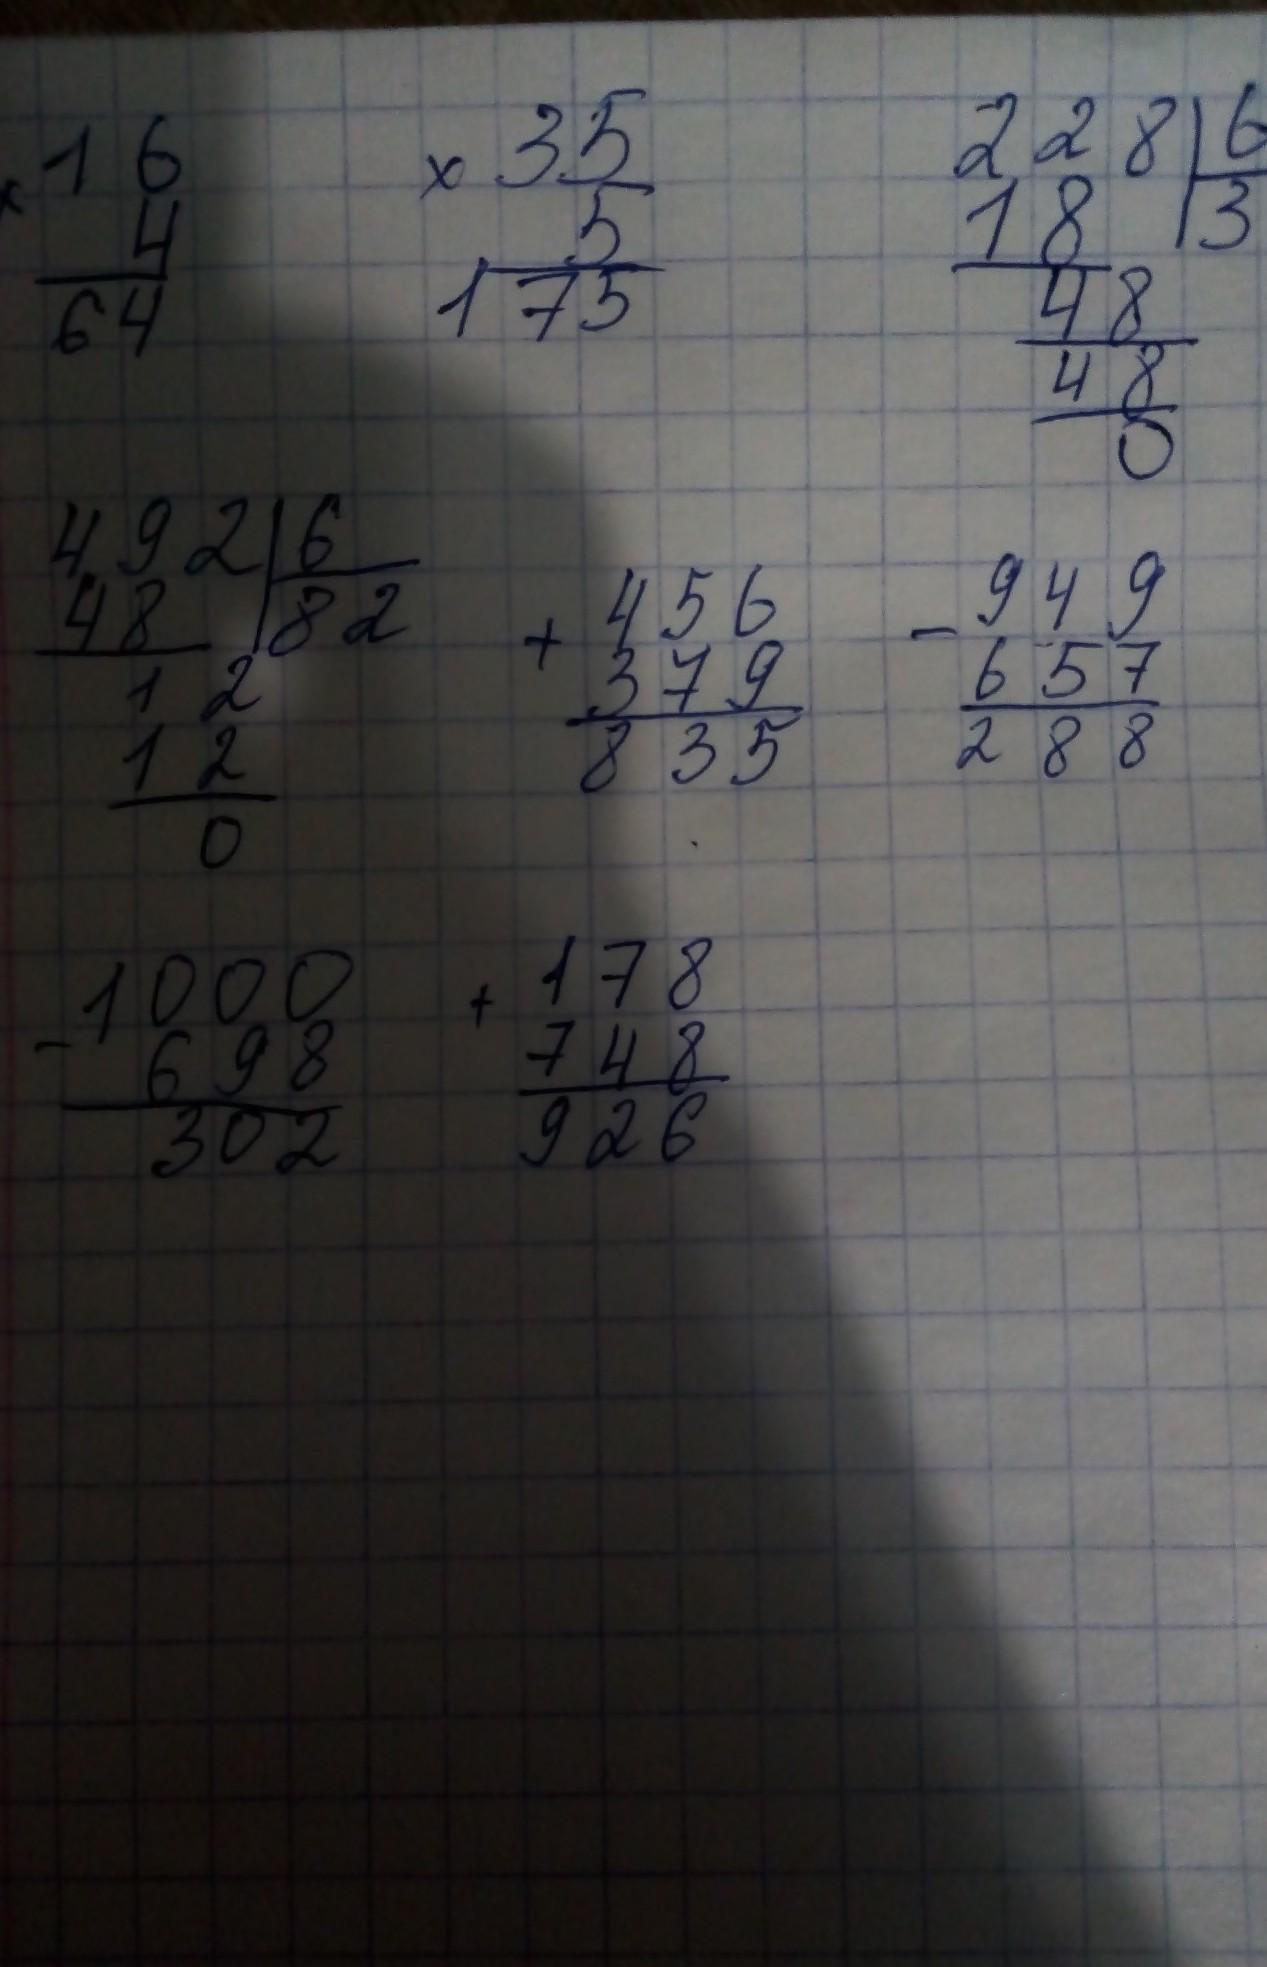 × 16
4
64
× 35
5
175
228 | 6
18 | 3
48
48
0
492 | 6
48 | 82
12
12
0
+ 456
379
835
- 949
657
288
- 1000
698
302
+ 178
748
926